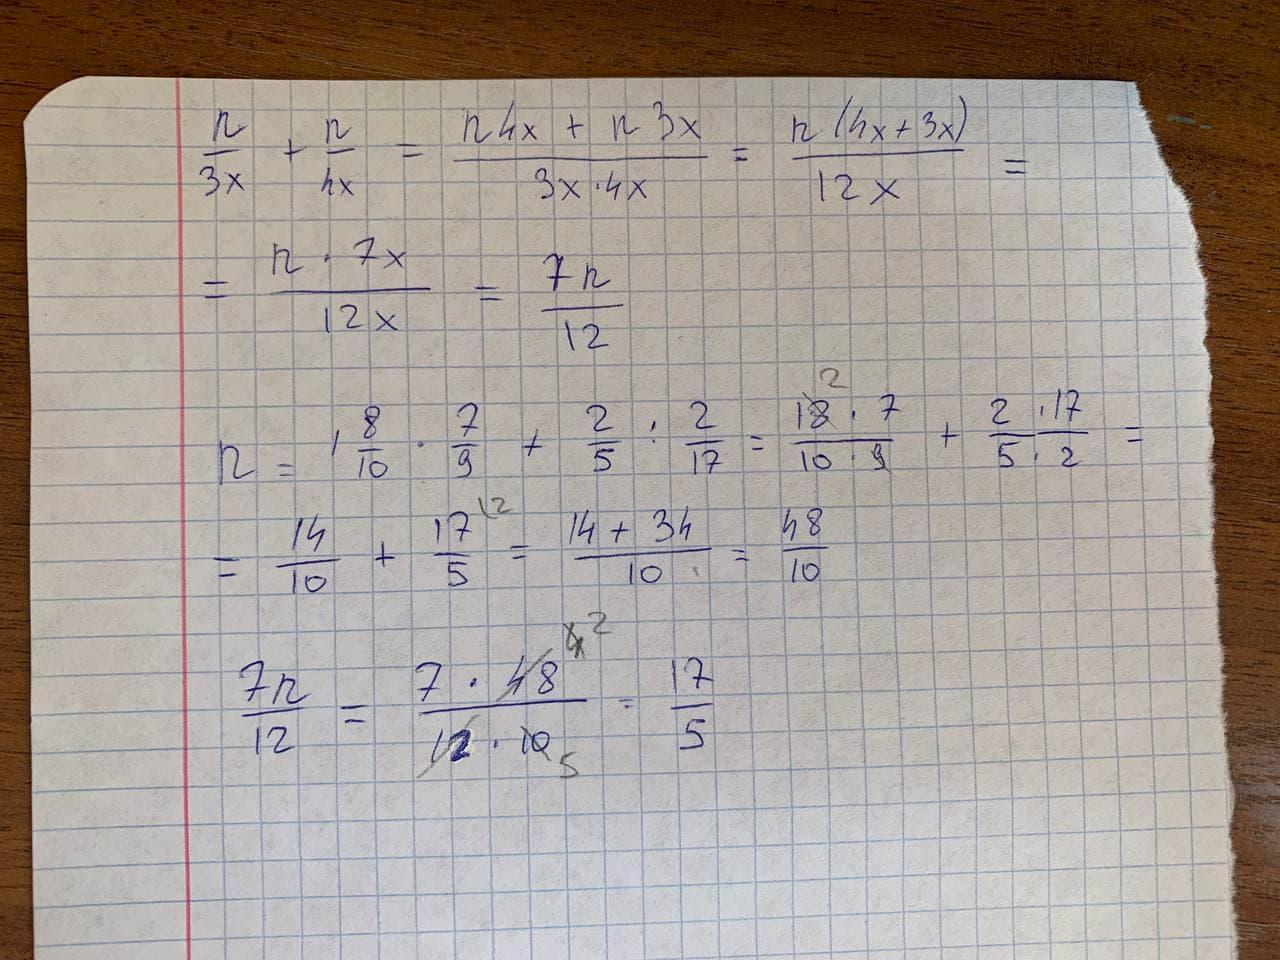 n/3x + n/4x = (n4x + n3x)/(3x·4x) = n(4x+3x)/12x =
= n·7x/12x = 7n/12
n = 1 8/10 · 7/9 + 2/5 : 2/17 = (18 2 · 7)/(10 · 9) + (2 · 17)/(5 · 2) =
= 14/10 + 17/5 |2 = (14 + 34)/10 = 48/10
7n/12 = (7 · 48 4 2)/(12 · 10 5) = 17/5